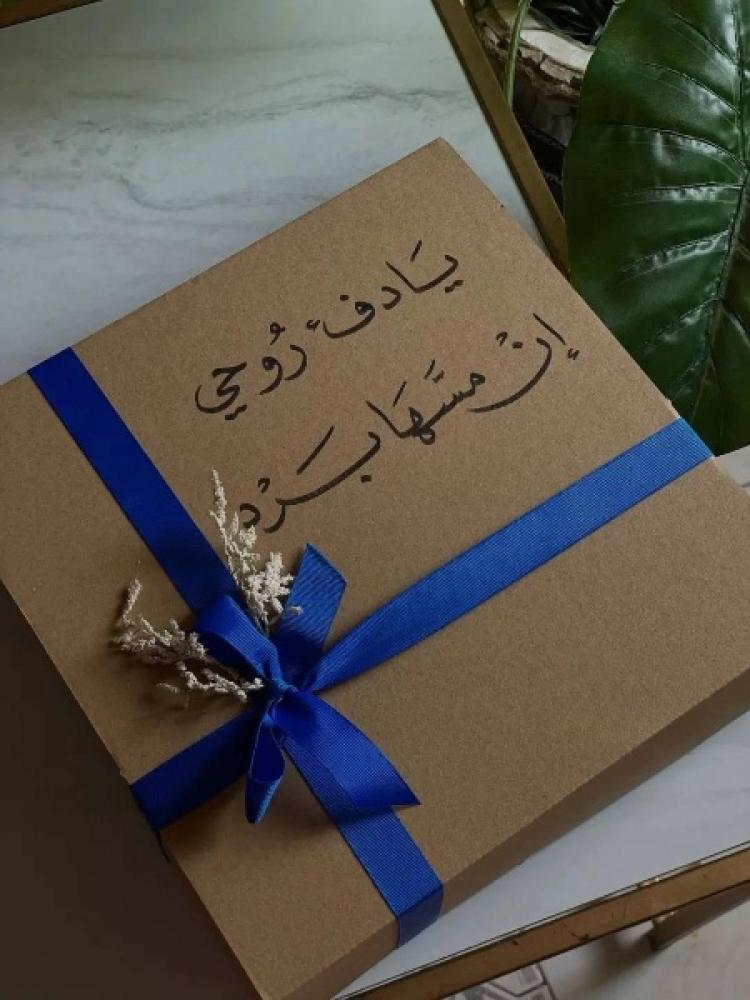 يَا دفْء رُوحي
إنْ مسَّهَا بَرَدْ